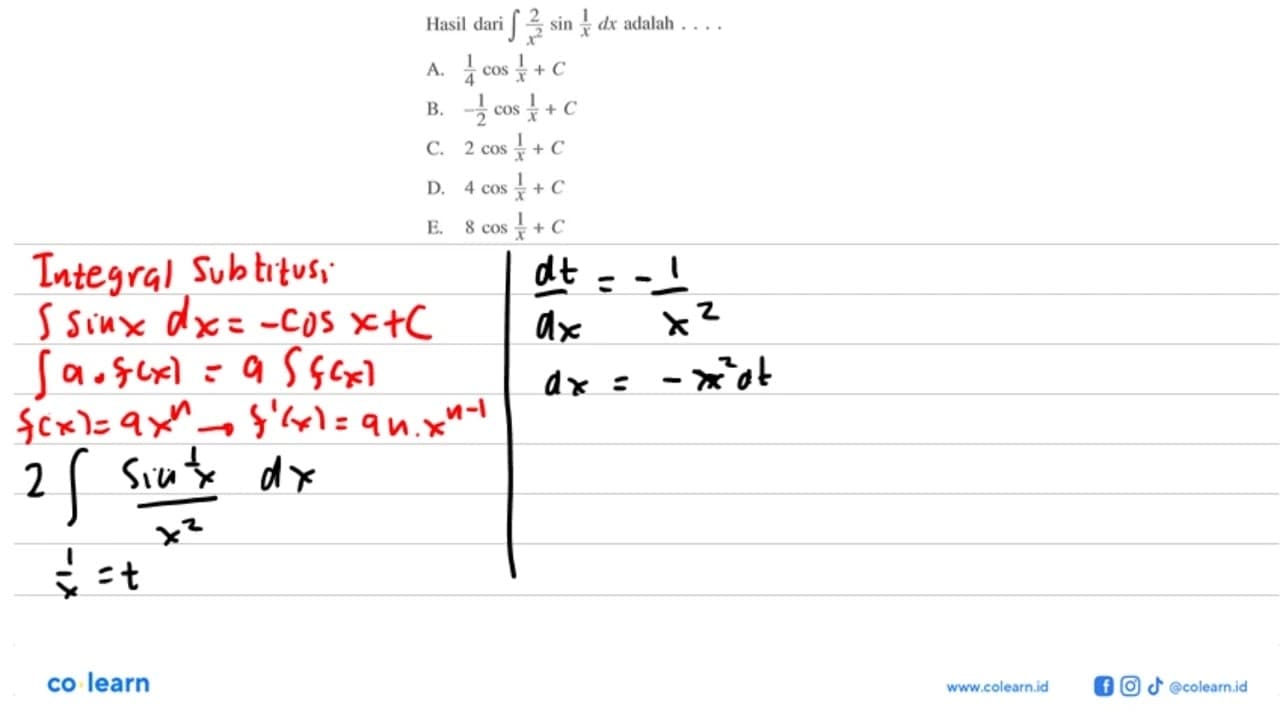 Hasil dari ∫ 2/x² sin 1/x dx adalah . . . .
A. 1/4 cos 1/x + C
B. -1/2 cos 1/x + C
C. 2 cos 1/x + C
D. 4 cos 1/x + C
E. 8 cos 1/x + C
Integral Subtitusi
∫ sinx dx = -cos x+C
∫ a.f(x) = a ∫ f(x)
f(x) = ax^n → f'(x) = an.x^(n-1)
2 ∫ sin 1/x / x² dx
1/x = t
dt/dx = - 1/x²
dx = - x² dt
co learn
www.colearn.id
@colearn.id